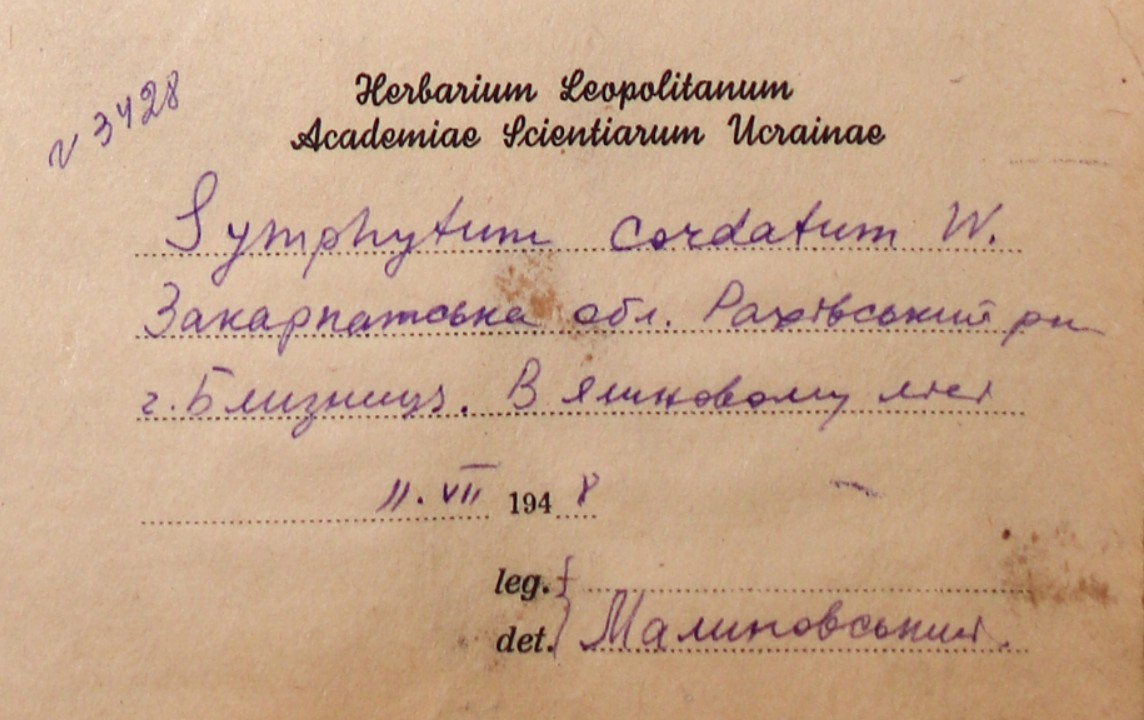 № 3428
Herbarium Leopolitanum
Academiae Scientiarum Ucrainae
Symphytum cordatum W.
Закарпатська обл. Рахівський рн
г. Близниця. В ялиновому лісі
11. VII 1948
leg.
det. Малиновський.